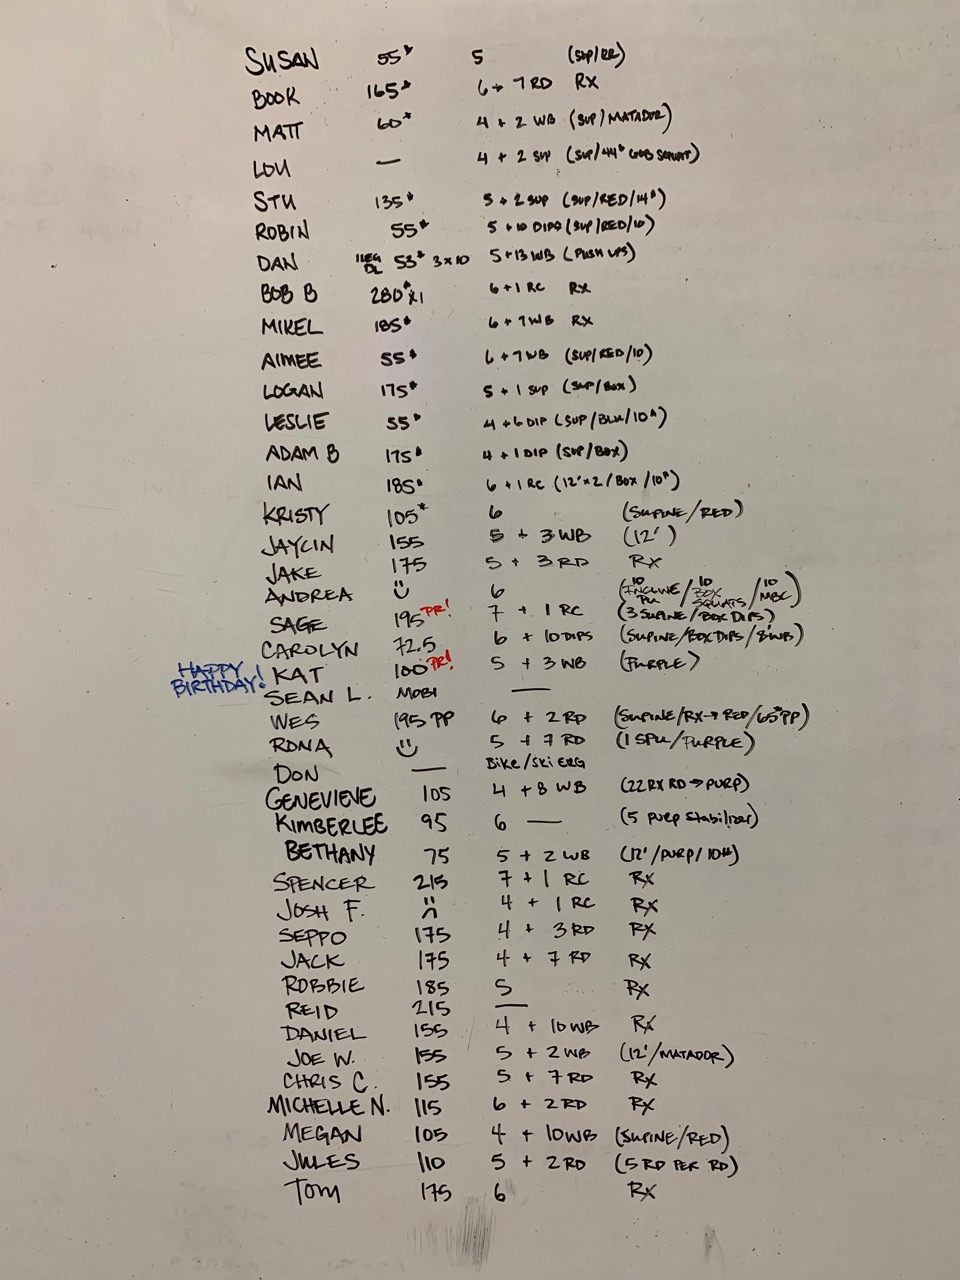 SUSAN 55# 5 (SUP/RR)
BOOK 165# 6 + 7 RD RX
MATT 60# 4 + 2 WB (SUP/MATADOR)
LOU — 4 + 2 SUP (SUP/44# GOB SQUAT)
STU 135# 5 + 2 SUP (SUP/RED/14#)
ROBIN 55# 5 + 10 DIPS (SUP/RED/10)
DAN 1 LEG DL 53# 3x10 5+13 WB (PUSH UPS)
BOB B 280# x1 6+1 RC RX
MIKEL 185# 6+7 WB RX
AIMEE 55# 6+7 WB (SUP/RED/10)
LOGAN 175# 5 + 1 SUP (SUP/BOX)
LESLIE 55# 4+6 DIP (SUP/BLU/10#)
ADAM B 175# 4+1 DIP (SUP/BOX)
IAN 185# 6+1 RC (12'x2/BOX/10#)
KRISTY 105# 6 (SUPINE/RED)
JAYLIN 155 5 + 3 WB (12')
JAKE 175 5 + 3 RD RX
ANDREA :) 6 (10 INCLINE PU/10 BOX SQUATS/10 MBC)
SAGE 195 PR! 7 + 1 RC (3 SUPINE/BOX DIPS)
CAROLYN 72.5 6 + 10 DIPS (SUPINE/BOX DIPS/8'WB)
HAPPY BIRTHDAY! KAT 100 PR! 5 + 3 WB (PURPLE)
SEAN L. MOBI —
WES 195 PP 6 + 2 RD (SUPINE/RX→RED/65# PP)
RONA :) 5 + 7 RD (1 SPU/PURPLE)
DON — Bike/Ski ERG
GENEVIEVE 105 4 + 8 WB (22 RX RD → PURP)
KIMBERLEE 95 6 — (5 purp Stabilizer)
BETHANY 75 5 + 2 WB (12'/PURP/10#)
SPENCER 215 7 + 1 RC RX
JOSH F. :( 4 + 1 RC RX
SEPPO 175 4 + 3 RD RX
JACK 175 4 + 7 RD RX
ROBBIE 185 5 RX
REID 215 —
DANIEL 155 4 + 10 WB RX
JOE W. 155 5 + 2 WB (12'/MATADOR)
CHRIS C. 155 5 + 7 RD RX
MICHELLE N. 115 6 + 2 RD RX
MEGAN 105 4 + 10 WB (SUPINE/RED)
JULES 110 5 + 2 RD (5 RD PER RD)
TOM 175 6 RX